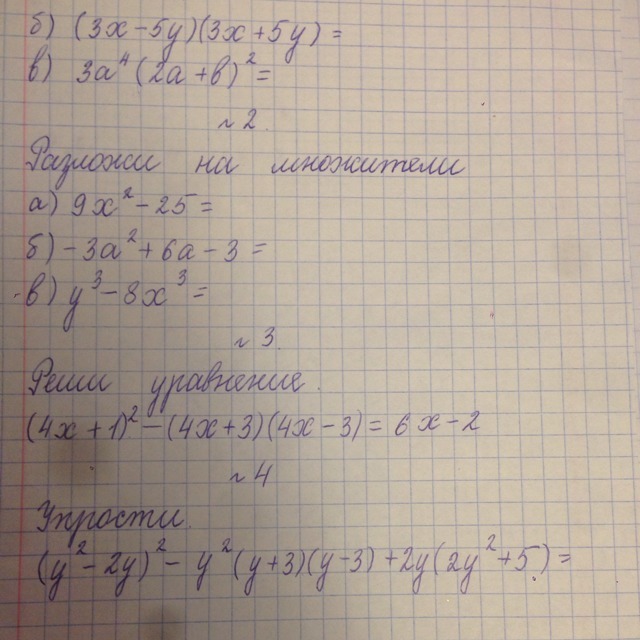 б) (3x-5y)(3x+5y) =
в) 3a⁴(2a+b)² =
№2.
Разложи на множители
а) 9x²-25 =
б) -3a²+6a-3 =
в) y³-8x³ =
№3.
Реши уравнение.
(4x+1)²-(4x+3)(4x-3) = 6x-2
№4
Упрости.
(y²-2y)²-y²(y+3)(y-3)+2y(2y²+5) =